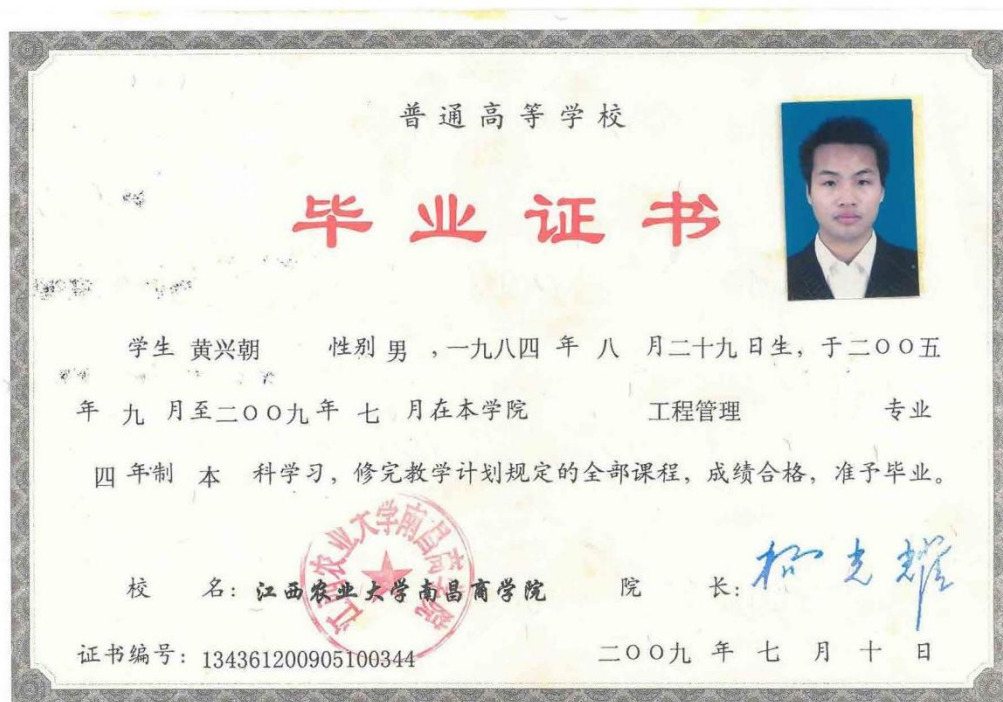 普通高等学校
毕业证书
学生 黄兴朝 性别 男 ,一九八四 年 八 月二十九日生，于二００五
年 九 月至二００九年 七 月在本学院 工程管理 专业
四 年制 本 科学习，修完教学计划规定的全部课程，成绩合格，准予毕业。
江西农业大学南昌商学院
校 名：江西农业大学南昌商学院 院 长：
证书编号：134361200905100344 二００九 年 七 月 十 日